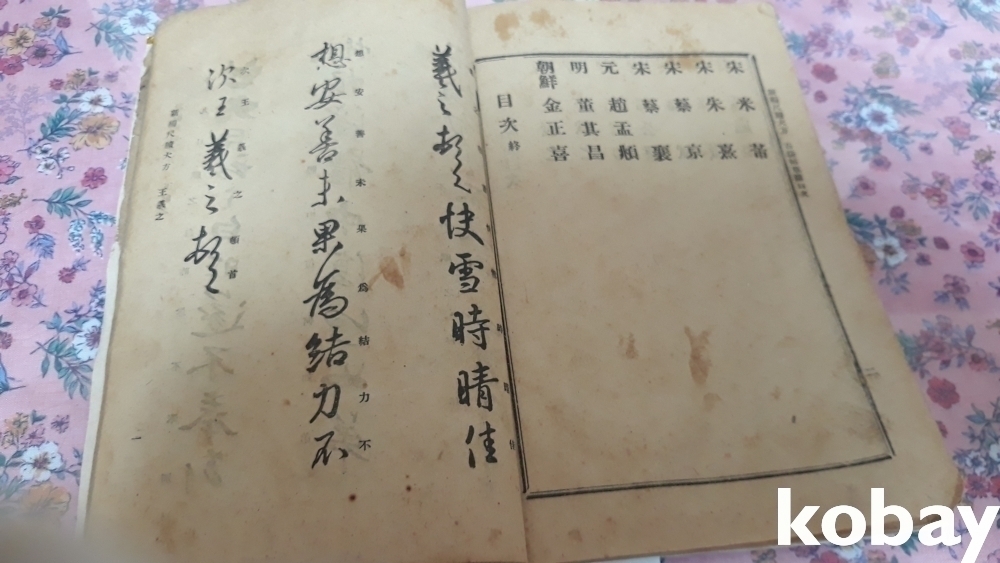 宋 米芾
宋 朱熹
宋 蔡京
宋 蔡襄
元 趙孟頫
明 董其昌
朝鮮 金正喜
目次 終
羲之頓首快雪時晴佳
想安善未果為結力不
想安善未果爲結力不
次王羲之頓首
次王羲之頓首
尺牘大方 王羲之
一
kobay